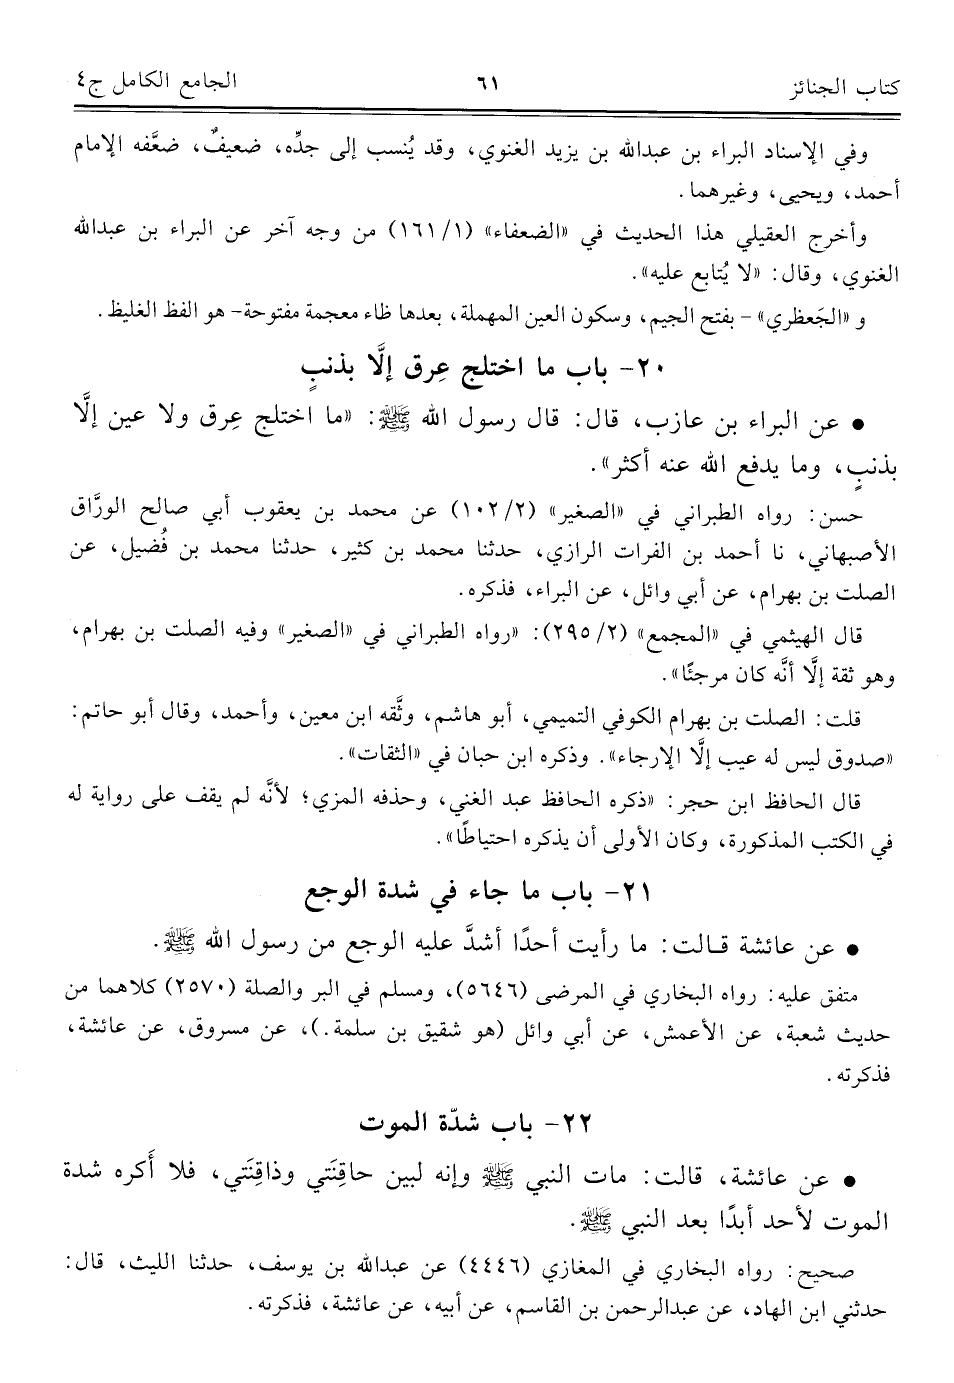 كتاب الجنائز ٦١ الجامع الكامل ج٤
وفي الإسناد البراء بن عبدالله بن يزيد الغنوي، وقد يُنسب إلى جدِّه، ضعيفٌ، ضعَّفه الإمام
أحمد، ويحيى، وغيرهما.
وأخرج العقيلي هذا الحديث في «الضعفاء» (١/ ١٦١) من وجه آخر عن البراء بن عبدالله
الغنوي، وقال: «لا يُتابع عليه».
و «الجَعظري» - بفتح الجيم، وسكون العين المهملة، بعدها ظاء معجمة مفتوحة- هو الفظ الغليظ.
٢٠- باب ما اختلج عِرق إلَّا بذنبٍ
• عن البراء بن عازب، قال: قال رسول الله ﷺ: «ما اختلج عِرق ولا عين إلَّا
بذنبٍ، وما يدفع الله عنه أكثر».
حسن: رواه الطبراني في «الصغير» (٢/ ١٠٢) عن محمد بن يعقوب أبي صالح الورَّاق
الأصبهاني، نا أحمد بن الفرات الرازي، حدثنا محمد بن كثير، حدثنا محمد بن فُضيل، عن
الصلت بن بهرام، عن أبي وائل، عن البراء، فذكره.
قال الهيثمي في «المجمع» (٢/ ٢٩٥): «رواه الطبراني في «الصغير» وفيه الصلت بن بهرام،
وهو ثقة إلَّا أنَّه كان مرجئًا».
قلت: الصلت بن بهرام الكوفي التميمي، أبو هاشم، وثَّقه ابن معين، وأحمد، وقال أبو حاتم:
«صدوق ليس له عيب إلَّا الإرجاء». وذكره ابن حبان في «الثقات».
قال الحافظ ابن حجر: «ذكره الحافظ عبد الغني، وحذفه المزي؛ لأنَّه لم يقف على رواية له
في الكتب المذكورة، وكان الأولى أن يذكره احتياطًا».
٢١- باب ما جاء في شدة الوجع
• عن عائشة قالت: ما رأيت أحدًا أشدَّ عليه الوجع من رسول الله ﷺ.
متفق عليه: رواه البخاري في المرضى (٥٦٤٦)، ومسلم في البر والصلة (٢٥٧٠) كلاهما من
حديث شعبة، عن الأعمش، عن أبي وائل (هو شقيق بن سلمة.)، عن مسروق، عن عائشة،
فذكرته.
٢٢- باب شدّة الموت
• عن عائشة، قالت: مات النبي ﷺ وإنه لبين حاقِنَتي وذاقِنَتي، فلا أَكره شدة
الموت لأحد أبدًا بعد النبي ﷺ.
صحيح: رواه البخاري في المغازي (٤٤٤٦) عن عبدالله بن يوسف، حدثنا الليث، قال:
حدثني ابن الهاد، عن عبدالرحمن بن القاسم، عن أبيه، عن عائشة، فذكرته.